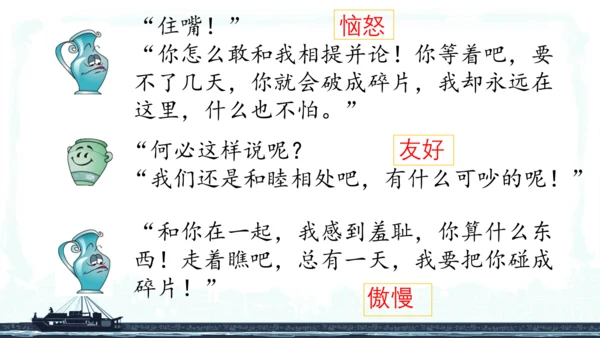 “住嘴！” 恼怒
“你怎么敢和我相提并论！你等着吧，要
不了几天，你就会破成碎片，我却永远在
这里，什么也不怕。”
“何必这样说呢？ 友好
“我们还是和睦相处吧，有什么可吵的呢！”
“和你在一起，我感到羞耻，你算什么东
西！走着瞧吧，总有一天，我要把你碰成
碎片！”
傲慢